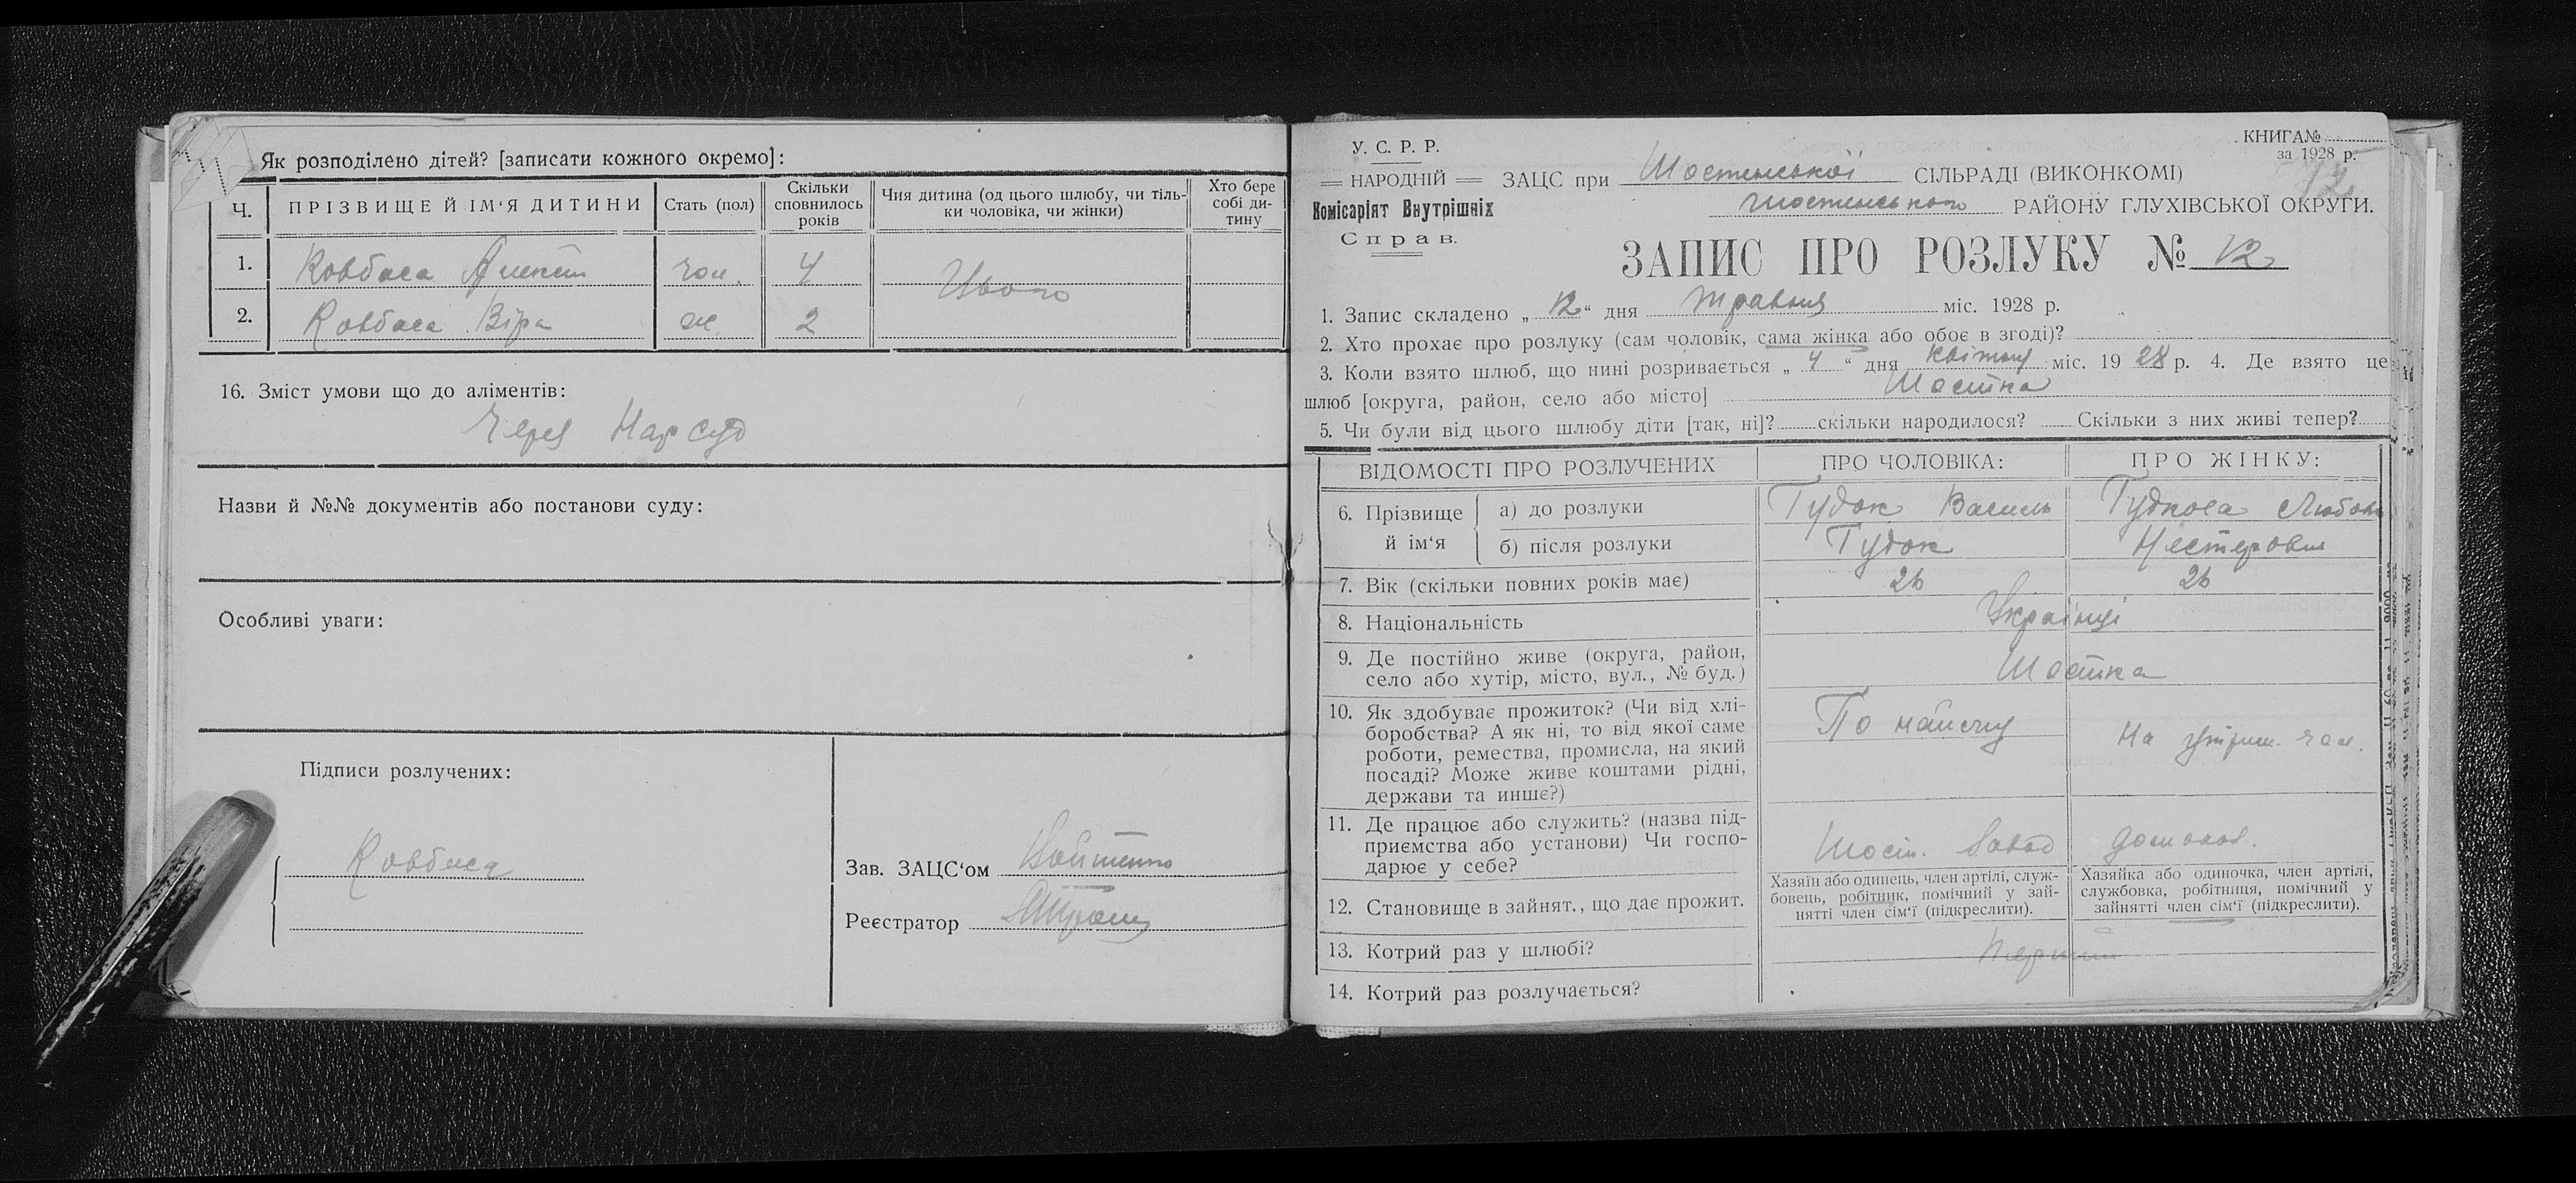 Як розподілено дітей? [записати кожного окремо]:
Ч.
ПРІЗВИЩЕ Й ІМ‘Я ДИТИНИ
Стать (пол)
Скільки сповнилось років
Чия дитина (од цього шлюбу, чи тіль-
ки чоловіка, чи жінки)
Хто бере собі ди-
тину
1. Ковбаса чол. 4
Цього
2. Ковбаса Віра ж. 2
16. Зміст умови що до аліментів:
Через Нарсуд
Назви й №№ документів або постанови суду:
Особливі уваги:
Підписи розлучених:
Ковбаса
Зав. ЗАЦС‘ом
Реєстратор
У. С. Р. Р.
НАРОДНІЙ
Комісаріят Внутрішніх
Справ.
КНИГА№
за 1928 р.
12
ЗАЦС при Шостенської СІЛЬРАДІ (ВИКОНКОМІ)
Шостенського РАЙОНУ ГЛУХІВСЬКОЇ ОКРУГИ.
ЗАПИС ПРО РОЗЛУКУ № 12
1. Запис складено „ 12 “ дня травня міс. 1928 р.
2. Хто прохає про розлуку (сам чоловік, сама жінка або обоє в згоді)?
3. Коли взято шлюб, що нині розривається „ 4 “ дня квітня міс. 19 28 р. 4. Де взято це
шлюб [округа, район, село або місто] Шостка
5. Чи були від цього шлюбу діти [так, ні]? скільки народилося? Скільки з них живі тепер?
ВІДОМОСТІ ПРО РОЗЛУЧЕНИХ
ПРО ЧОЛОВІКА:
ПРО ЖІНКУ:
6. Прізвище й ім‘я
а) до розлуки
Гудок Василь
Гудкова Любов
б) після розлуки
Гудок
Нестеровы
7. Вік (скільки повних років має)
26
26
8. Національність
Українці
9. Де постійно живе (округа, район,
село або хутір, місто, вул., № буд.)
Шостка
10. Як здобуває прожиток? (Чи від хлі-
боробства? А як ні, то від якої саме
роботи, ремества, промисла, на який
посаді? Може живе коштами рідні,
держави та инше?)
По найому
На утрим. чол.
11. Де працює або служить? (назва під-
приємства або установи) Чи госпо-
дарює у себе?
Шост. Завод
домохоз.
12. Становище в зайнят., що дає прожит.
Хазяїн або одинець, член артілі, служ-
бовець, робітник, помічний у зай-
нятті член сім‘ї (підкреслити).
Хазяйка або одиночка, член артілі,
службовка, робітниця, помічний у
зайнятті член сім‘ї (підкреслити).
13. Котрий раз у шлюбі?
Перший
14. Котрий раз розлучається?